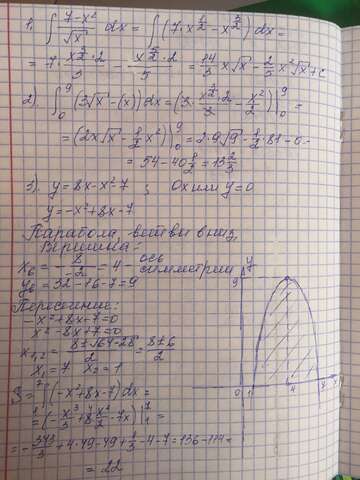 1. ∫ (7-x²)/√x dx = ∫ (7·x^(1/2) - x^(3/2)) dx =
= 7·x^(3/2)·2/3 - x^(5/2)·2/5 = 14/3 x√x - 2/5 x²√x + c
2). ∫₀⁹ (3√x - (x)) dx = (3·x^(3/2)/3·2 - x²/2)|₀⁹ =
= (2x√x - 1/2 x²)|₀⁹ = 2·9√9 - 1/2·81 - 0 -
= 54 - 40
3). y = 8x - x² - 7 ; Ox или y = 0
y = -x² + 8x - 7
Парабола, ветви вниз,
Вершина:
x₆ = -8/-2 = 4 - ось симметрии
y₆ = 32 - 16 - 7 = 9
Пересечение:
-x² + 8x - 7 = 0
x² - 8x + 7 = 0
x₁,₂ = (8 ± √64-28)/2 = (8 ± 6)/2
x₁ = 7 x₂ = 1
S = ∫₁⁷ (-x² + 8x - 7) dx =
= (-x³/3 + 8x²/2 - 7x)|₁⁷ =
= -343/3 + 4·49 - 49 + 1/3 - 4 - 7 = 136 - 114 =
= 22
y
9
0 1 4 7 x